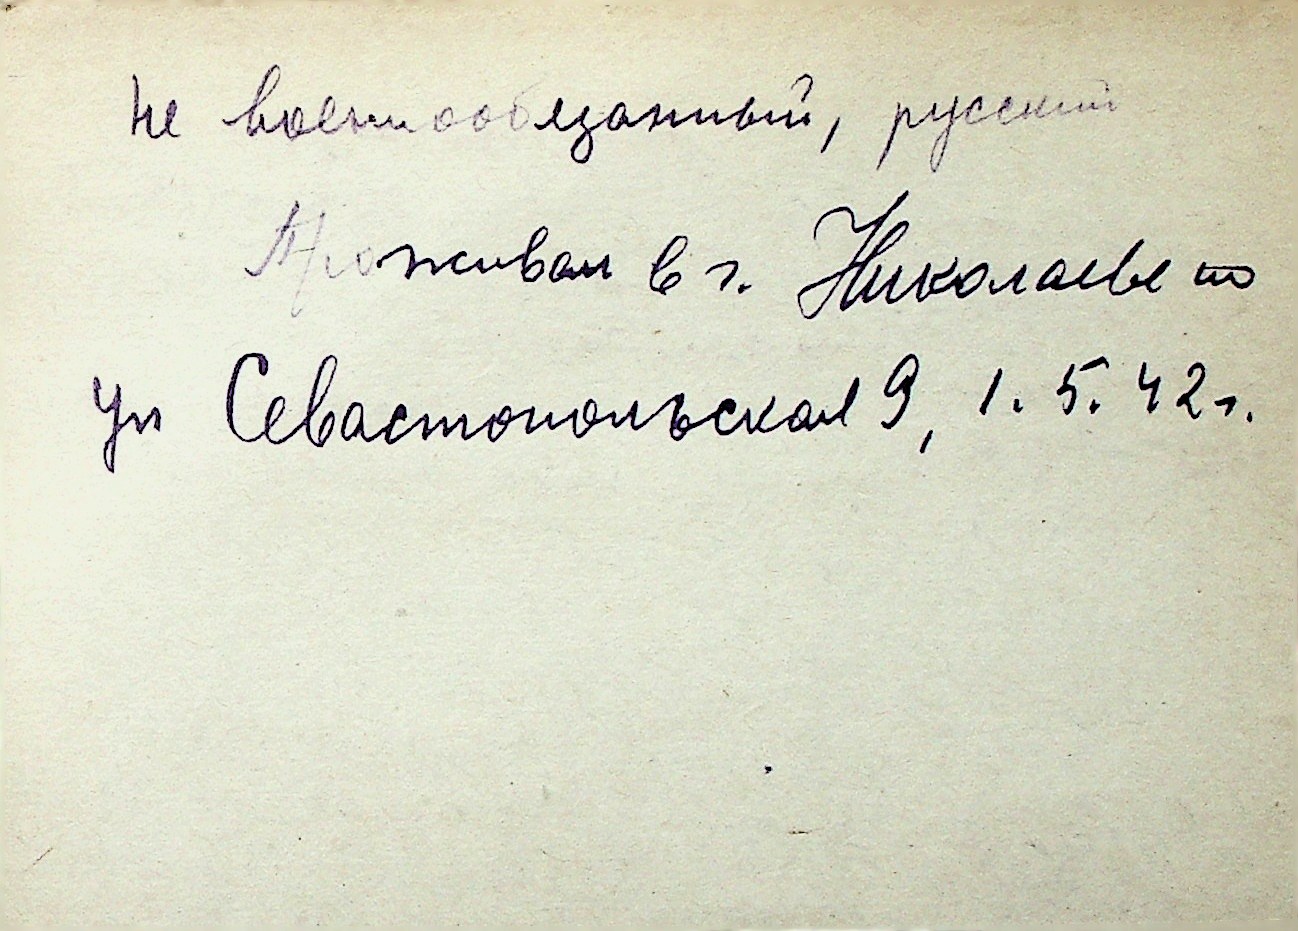 не военнообязанный, русский
Проживал в г. Николаеве по
ул Севастопольская 9, 1. 5. 42 г.